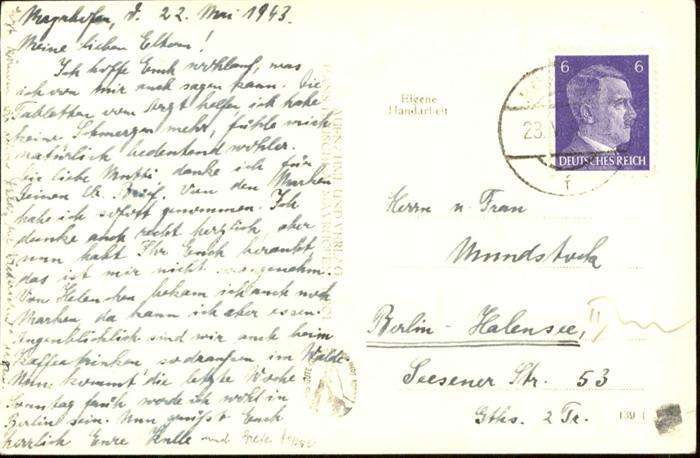 Mayrhofen, d. 22. Mai 1943.
Meine lieben Eltern!
Ich hoffe Euch wohlauf, was
ich von mir auch sagen kann. Die
Tabletten vom Arzt helfen, ich habe
keine Schmerzen mehr, fühle mich
natürlich bedeutend wohler.
Die liebe Mutti danke ich für
Deinen lb. Brief. Von den Marken
habe ich sofort genommen. Ich
danke auch recht herzlich, aber
nun habt Ihr Euch beraubt,
das ist mir nicht angenehm.
Von Helenchen bekam ich auch noch
Marken da kann ich aber essen.
Augenblicklich sind wir auch beim
Kaffeetrinken so draußen im Walde
Nun kommt die letzte Woche
Sonntag früh werde ich wohl in
Berlin sein. Nun grüßt Euch
herzlich Eure und
Eigene
Handarbeit
6 6
DEUTSCHES REICH
23.
f
Herrn u. Frau
Mundstock
Berlin-Halensee,
Seesener Str. 53
Gths. 2 Tr.
139